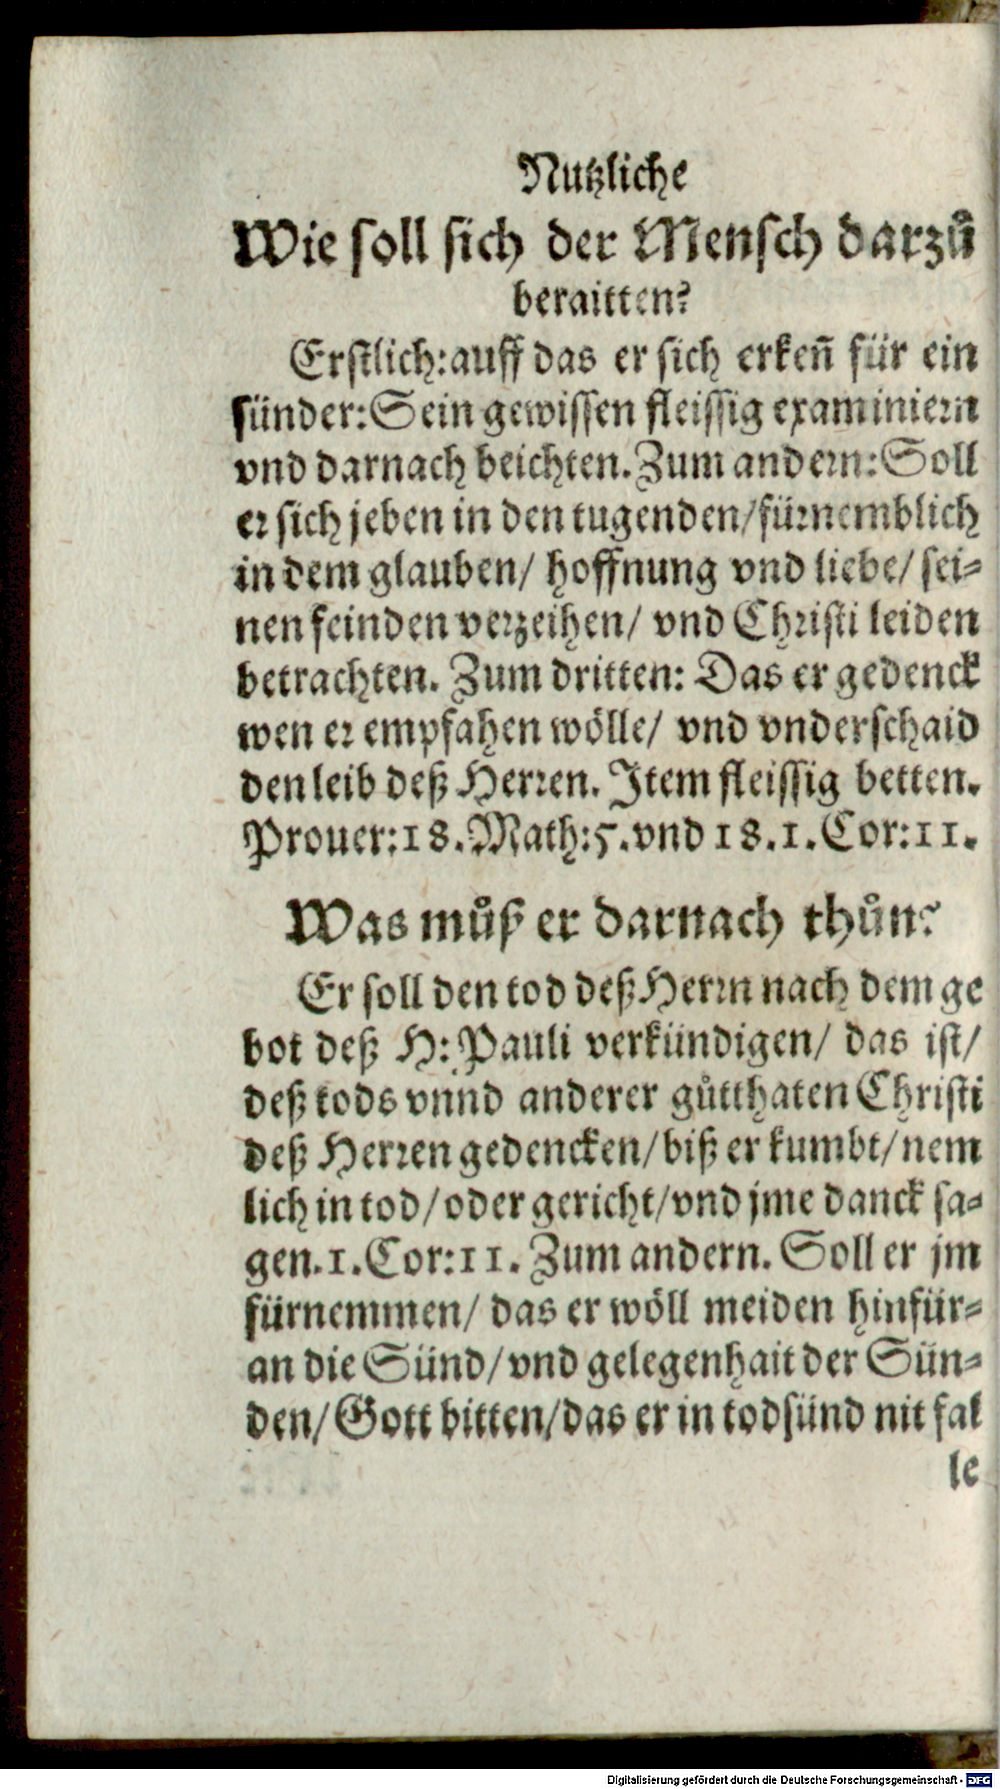 Nutzliche
Wie soll sich der Mensch darzů
beraitten?
Erstlich: auff das er sich erkeñ für ein
sünder: Sein gewissen fleissig examiniern
vnd darnach beichten. Zum andern: Soll
er sich jeben in den tugenden/ fürnemblich
in dem glauben/ hoffnung vnd liebe/ sei-
nen feinden verzeihen/ vnd Christi leiden
betrachten. Zum dritten: Das er gedenck
wen er empfahen wölle/ vnd vnderschaid
den leib deß Herren. Item fleissig betten.
Prouer: 18. Math: 5. vnd 18. 1. Cor: 11.
Was můß er darnach thůn?
Er soll den tod deß Herrn nach dem ge
bot deß H: Pauli verkündigen/ das ist/
deß tods vnnd anderer gůtthaten Christi
deß Herren gedencken/ biß er kumbt/ nem
lich in tod/ oder gericht/ vnd jme danck sa-
gen. 1. Cor: 11. Zum andern. Soll er jm
fürnemmen/ das er wöll meiden hinfür-
an die Sünd/ vnd gelegenhait der Sün-
den/ Gott bitten/ das er in todsünd nit fal
le
Digitalisierung gefördert durch die Deutsche Forschungsgemeinschaft - DFG